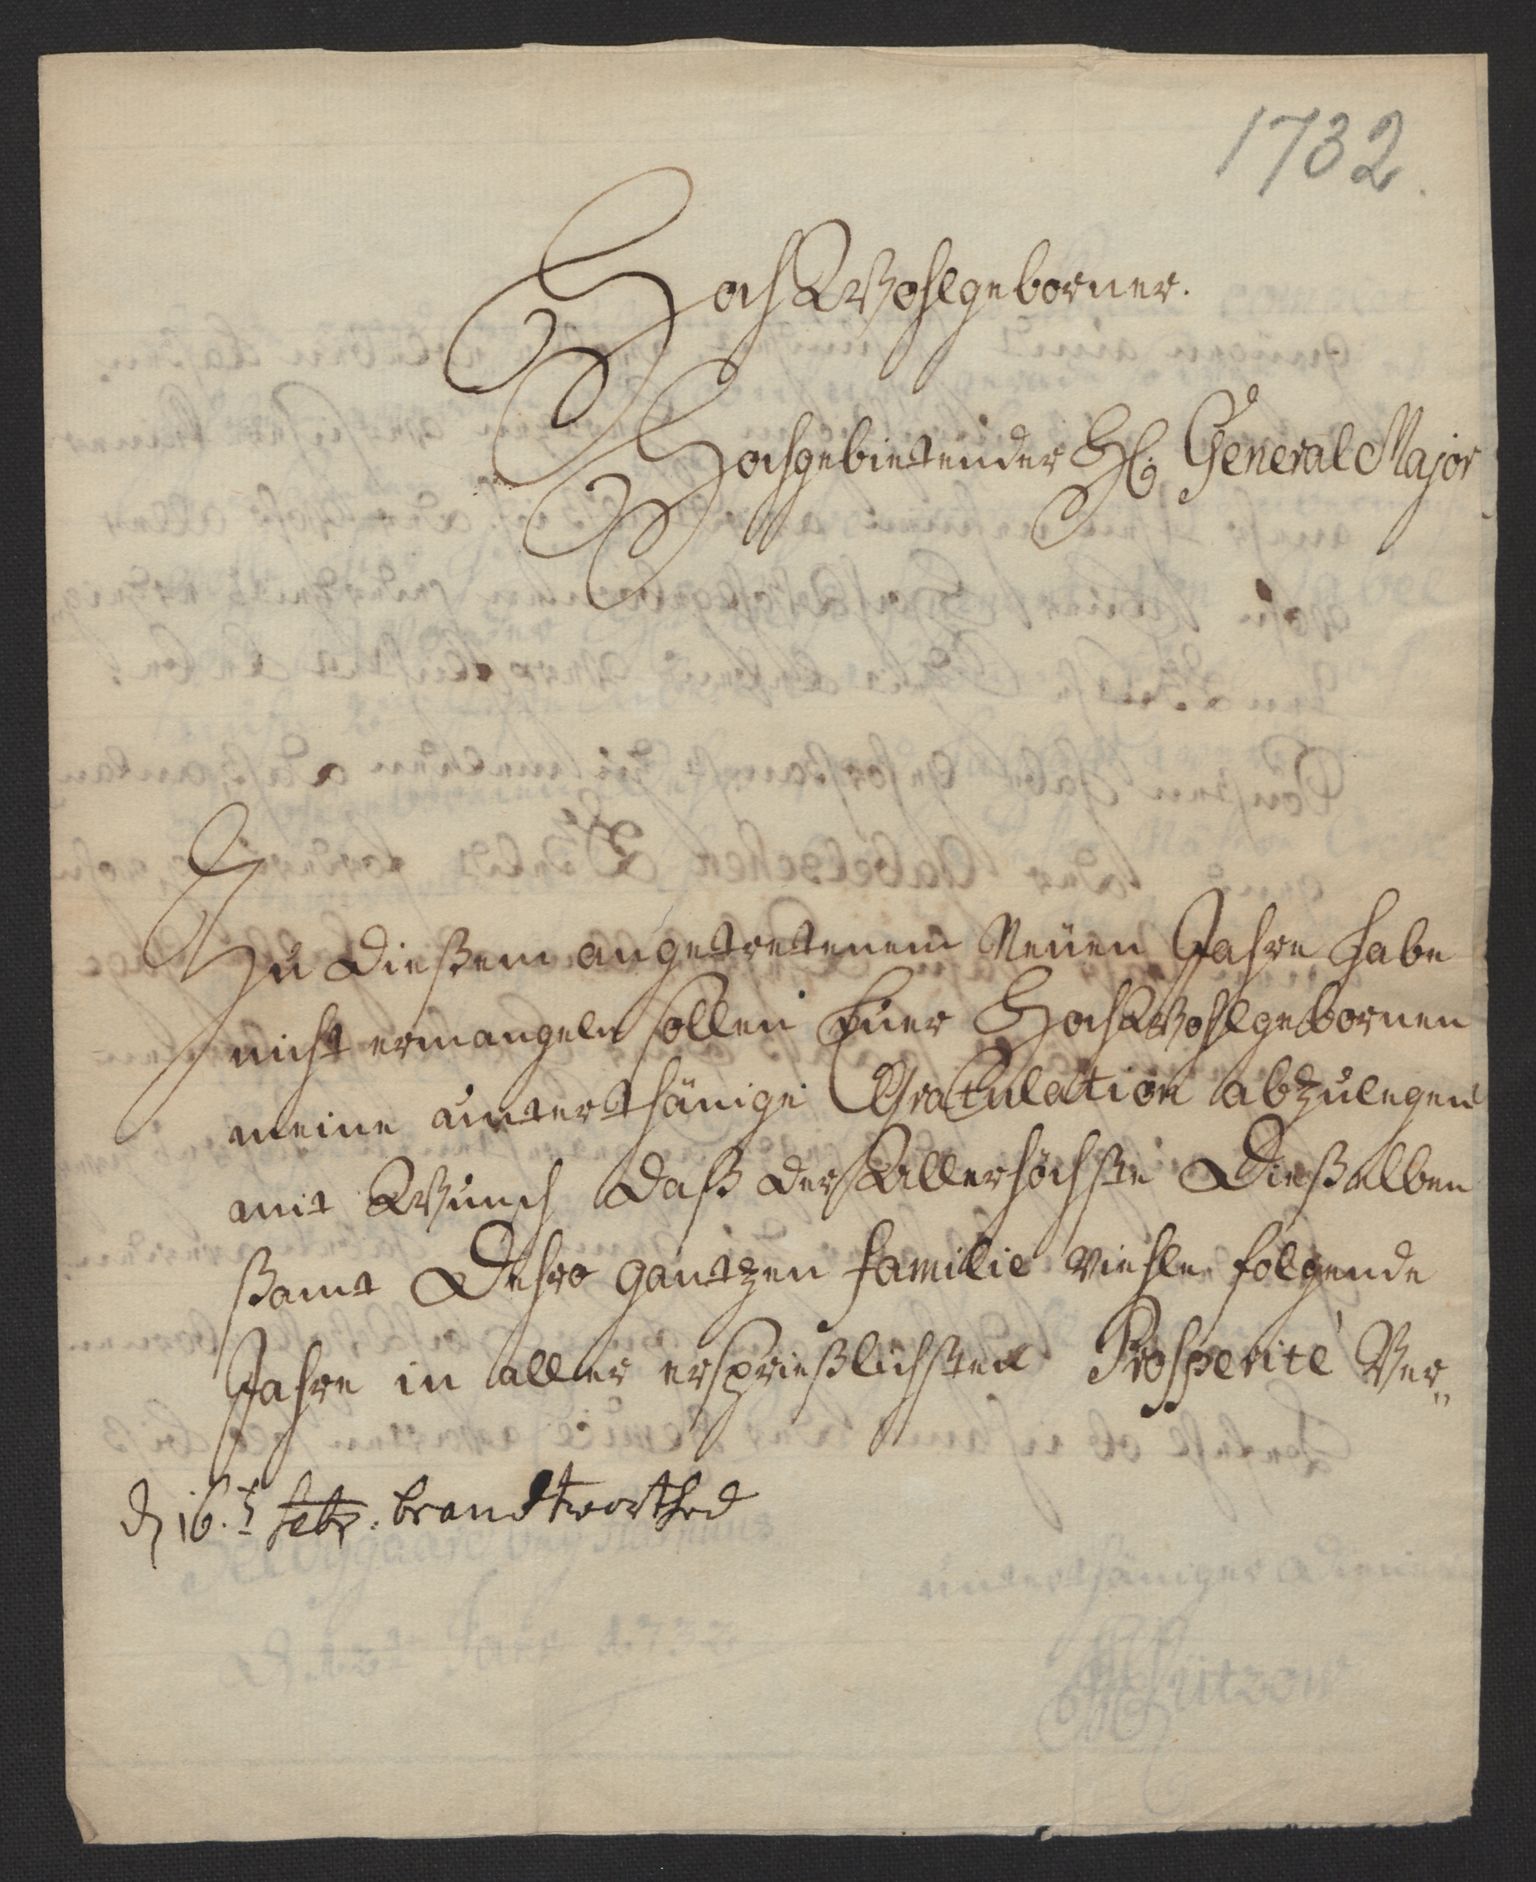 1732.
HochWohlgeborner.
Hochgebietender H: General Major
Zu dießem angetretenem Neüen Jahre habe
nicht ermangeln sollen Euer HochWohlgebornen
meine unterthänige Gratulation abzulegen
mit Wunsch daß der Allerhöchste Dießelben
ßamt Dehro gantzen familie viehle folgende
Jahre in aller ersprießlichsten Prosperité Ver„
d 16.t febr. brandtworthed